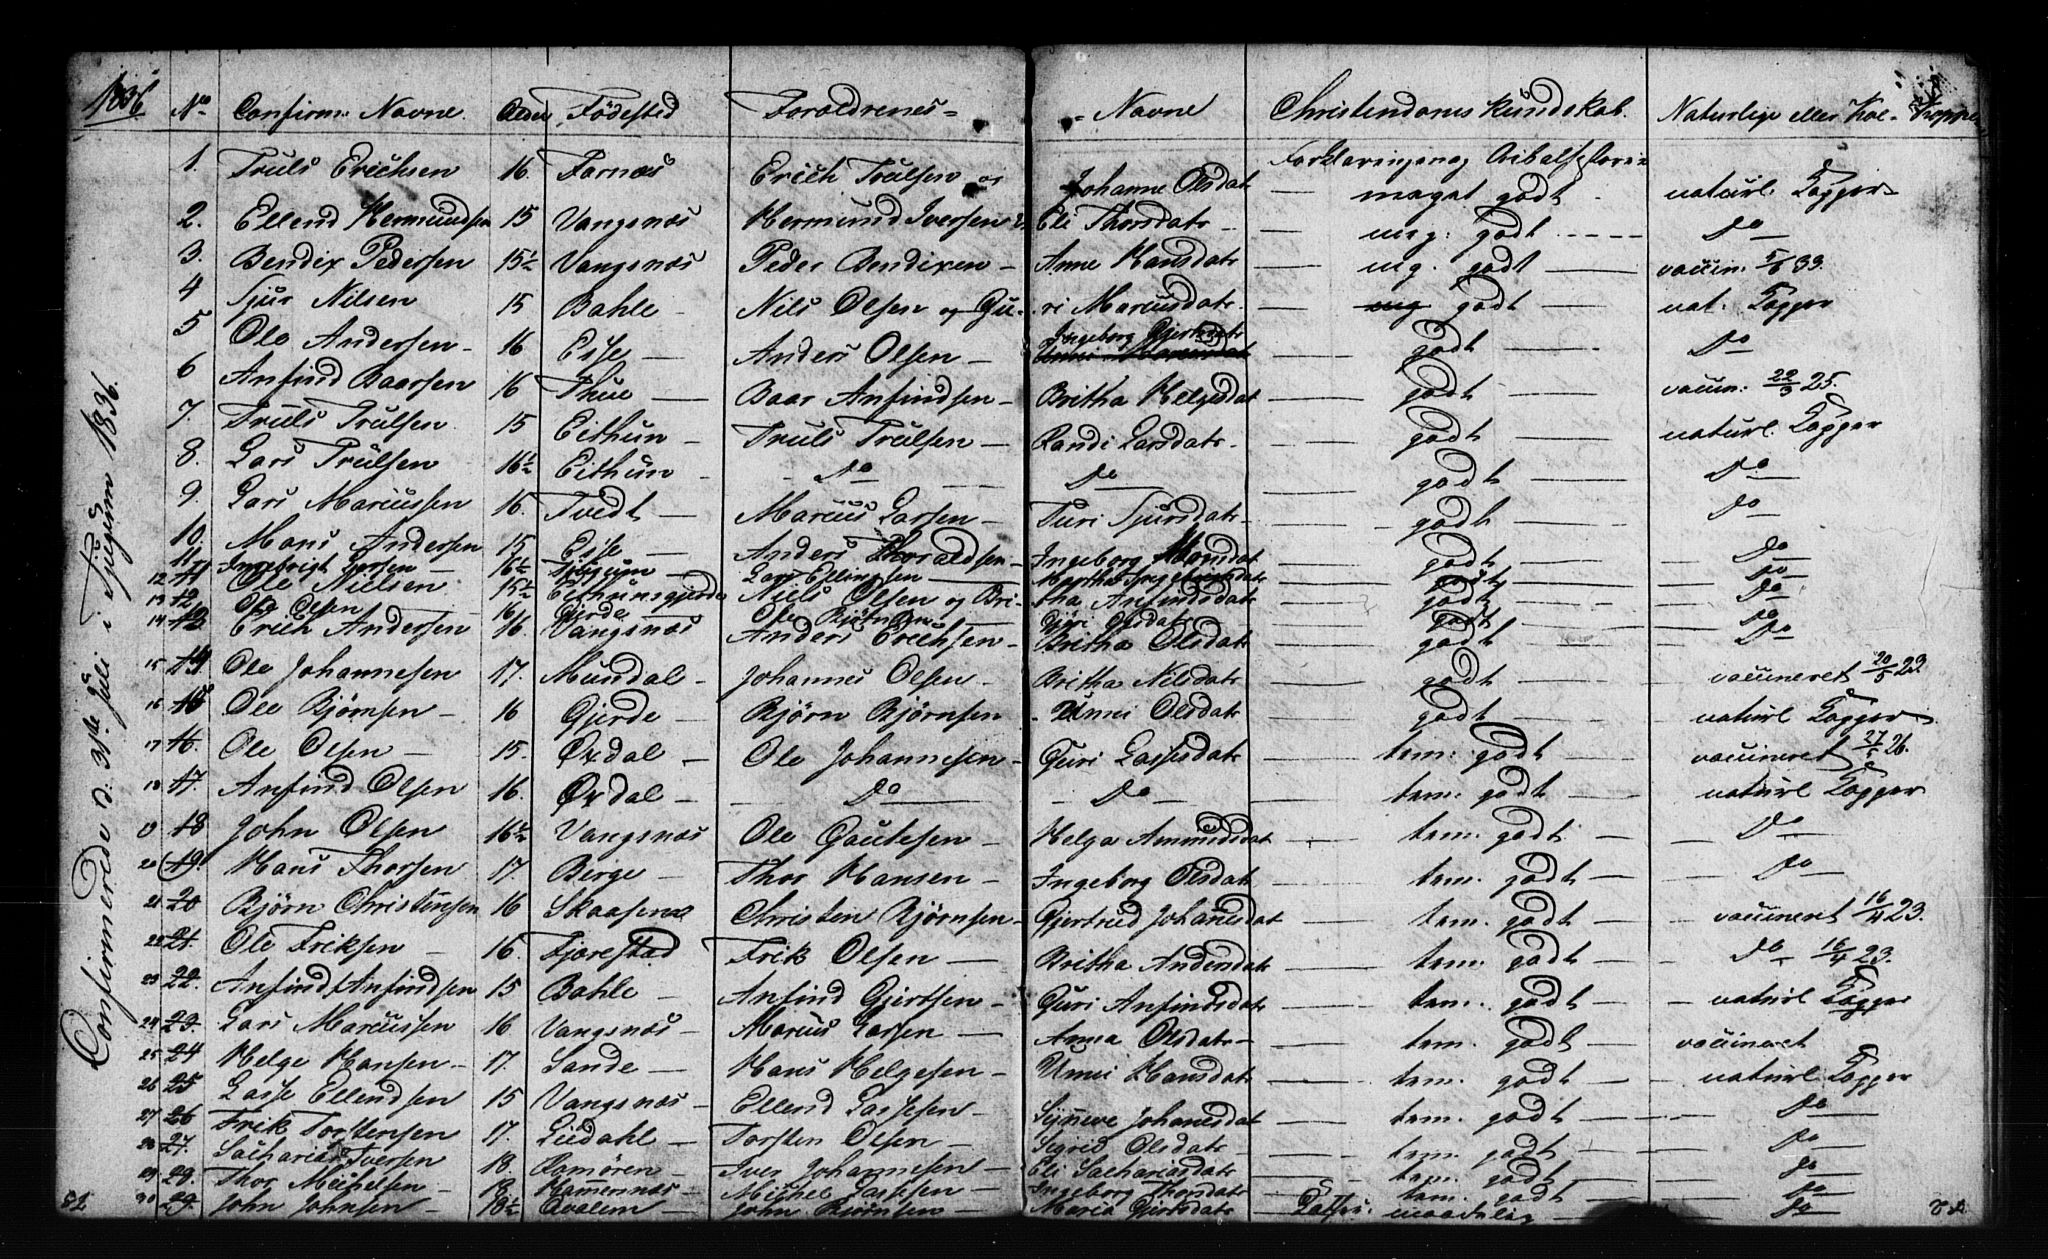 1836
No Confirm: Navne. Alder Födested Foraldrenes - - Navne Christendoms Kundskab. Naturlige eller Koe-Kopper
Forklaringen og Bibelhistorie
1. Truls Erichsen 16 Farnæs Erich Trulsen og Johanne Olsdatr — meget godt naturl. Kopper
2. Ellend Hermundsen 15 Vangsnæs Hermund Iversen Eli Thorsdatr meg. godt Do
3. Bendix Pedersen 15½ Vangsnæs Peder Bendixen — Anne Hansdatr mg. godt vaccin. 5/6 33.
4 Sjur Nilsen 15 Bahle — Nils Olsen og Gu-ri Marcusdatr godt nat. Kopper
5 Ole Andersen — 16 Esse — Anders Olsen — Ingeborg Gjertsdatr godt Do
6 Anfind Baarsen 16 Thue — Baar Anfindsen — Britha Helgesdat godt vaccin: 22/3 25.
7. Truls Trulsen 15 Eithun — Truls Trulsen — Randi Larsdatr godt naturl. Kopper
8. Lars Trulsen 16½ Eithun — Do Do godt Do
9. Lars Marcussen 16. Tvedt — Marcus Larsen — Turi Sjursdatr godt Do
10. Mons Andersen 15 Esse — Anders Thoraldsen — Ingeborg Monsdat godt Do
11. Ingebrigt Larsen 16½ Sjugum — Lars Ellingsen — Martha Ingebrigtsdatr godt Do
12 11 Ole Nielsen 15½ Eithunsgjerde Niels Olsen og Bri-tha Anfindsdatr godt Do
13 12 Ole Olsen 16 Gjerde Ole Björnsen — Guri Olsdatr godt Do
14 13 Erich Andersen 16 Vangsnæs Anders Erichsen — Britha Olsdatr godt Do
15 14 Ole Johannesen 17. Mundal — Johannes Olsen Britha Nilsdatr godt vaccineret 20/5 23
16 15 Ole Björnsen — 16 Gjerde — Björn Björnsen Unni Olsdatr godt naturl Kopper
17 16. Ole Olsen — 15. Öxdal — Ole Johannesen — Guri Lassesdatr tem. godt vaccineret 27/5 26.
18 17. Anfind Olsen 16. Öxdal — Do Do tem. godt naturl Kopper
19 18 John Olsen 16½ Vangsnæs Ole Gautesen — Helga Ammundsdat tem. godt Do
20 19. Hans Thorsen 17 Berge — Thor Hansen — Ingeborg Olsdatr tem. godt Do
21 20 Björn Christensen 16 Skaasenæ Christen Björnsen — Gjertrud Johanesdat tem. godt vaccineret 16/4 23.
22 21. Ole Friksen — 16. Fjærestad Frik Olsen — Britha Andersdatr tem. godt Do 16/4 23.
23 22. Anfind Anfindsen 15 Bahle — Anfind Gjertsen — Guri Anfindsdatr tem. godt naturl Kopper
24 23. Lars Marcussen 16 Vangsnæs — Marcus Larsen — Anna Olsdatr — tem. godt vaccineret
25 24 Helge Hansen — 17. Sande — Hans Helgesen — Unni Hansdatr tem. godt naturl. Kopper
26 25 Lasse Ellendsen 15 Vangsnæs — Ellend Lassesen — Synneve Johanesdat tem. godt Do
27 26 Frik Torstensen 17. Liedahl — Torsten Olsen — Sigrid Olsdatr tem. godt Do
28 27. Sacharias Iversen 18 Romören — Iver Johannesen — Eli Sachariasdatr tem. godt Do
29 28. Thor Michelsen — 18 Hamernæs — Michel Lassesen — Ingeborg Thorsdatr tem. godt Do
30 29. John Johnsen 18½ Qvalem — John Björnsen — Maria Gjertsdatr maadelig Do
Confirmerede d. 31te Juli i Sjugum 1836.